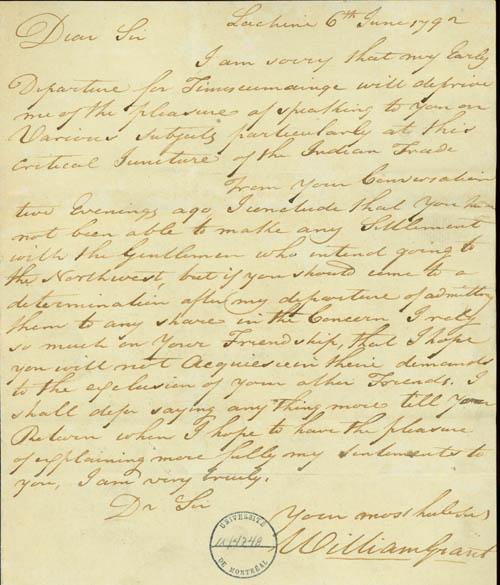 Lachine 6th June 1792
Dear Sir
I am sorry that my Early
Departure for Timiscumainge will deprive
me of the pleasure of speaking to you on
Various Subjects particularly at this
critical Juncture of the Indian Trade
From Your Conversation
two Evenings ago, I conclude that You have
not been able to make any Settlement
with the Gentlemen who intend going to
the Northwest, but if you should come to a
determination after my departure of admitting
them to any share in the Concern I rely
so much on Your Friendship, that I hope
you will not Acquiesce in their demands
to the exclusion of your other Friends. I
shall defer saying any thing more till Your
Return when I hope to have the pleasure
of explaining more fully my sentiments to
you, I am very truly.
Dr Sir
Your most
William Grant
UNIVERSITÉ
DE MONTRÉAL